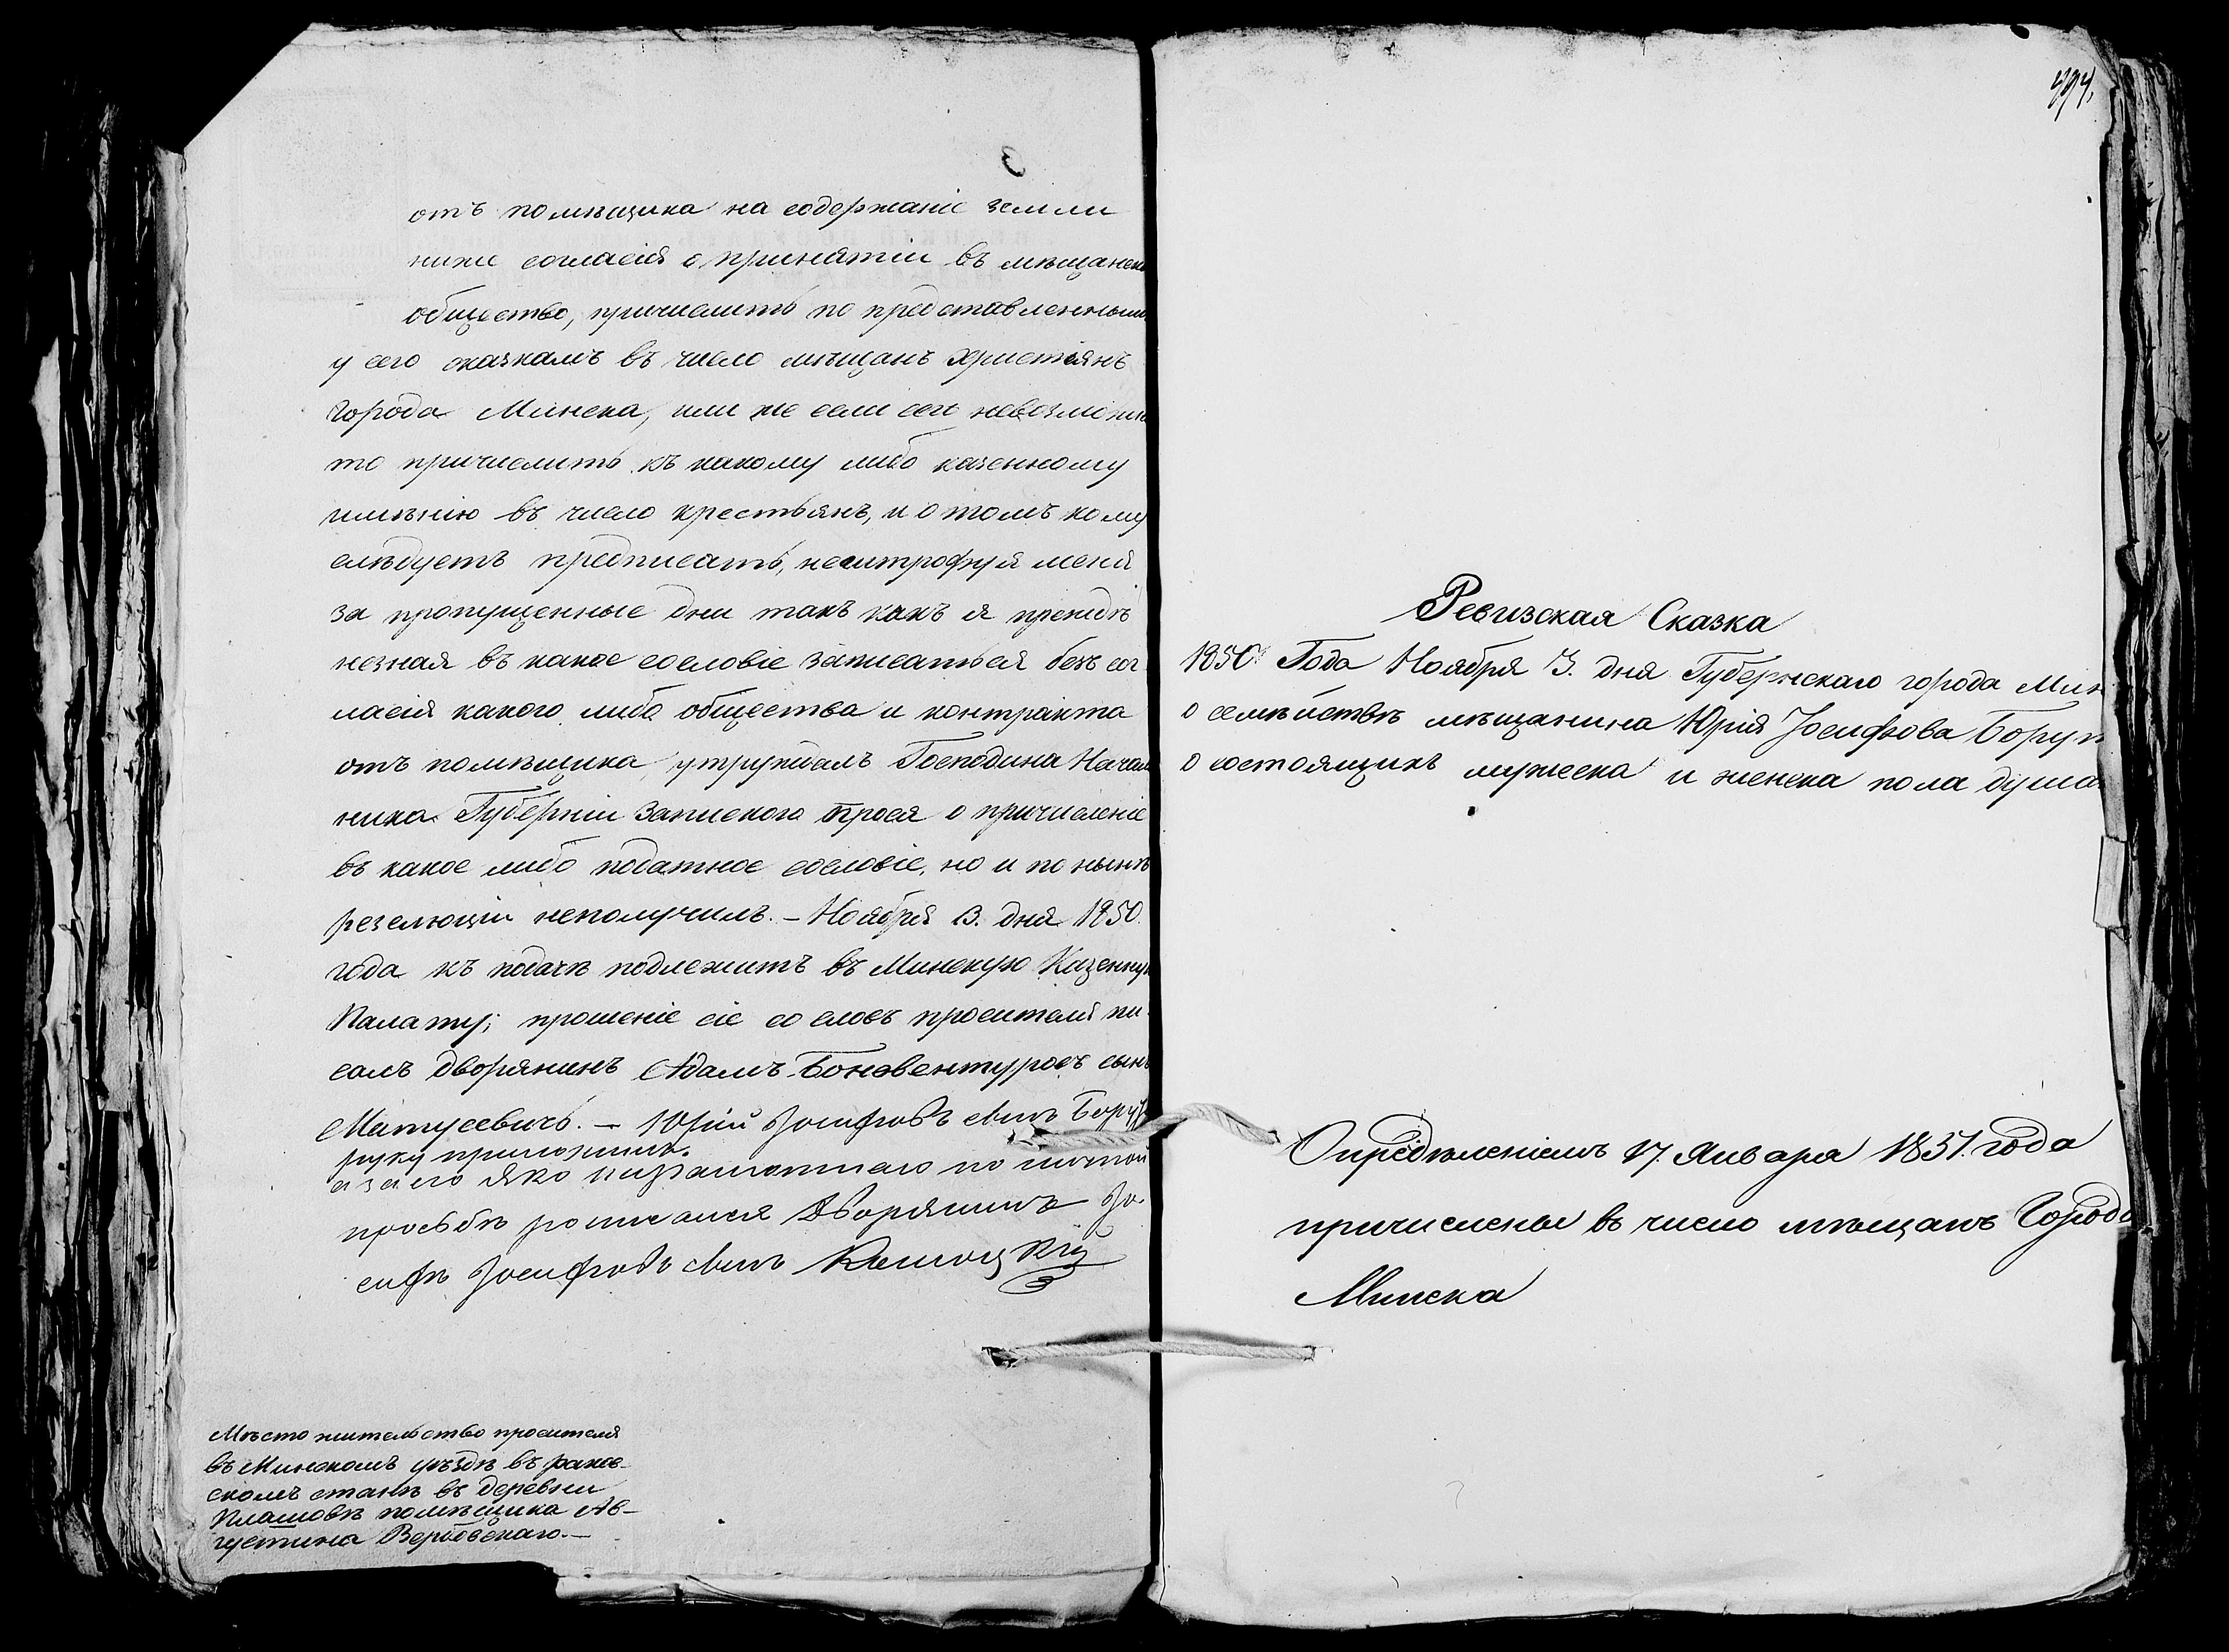 отъ помѣщика на содержаніе земли
ниже согласія о принятіи въ мѣщанск
общество, причислить по представленнымъ
у сего сказкамъ въ число мѣщанъ христіянъ
города Минска, или же если сего невозможн
то причислить къ какому либо казенному
имѣнію въ число крестьянъ, и о томъ кому
слѣдуетъ предписать, нештрофуя меня
за пропущенные дни такъ какъ я прежде
незная въ какое сословіе записаться безъ сог
ласія какого либо общества и контракта
отъ помѣщика, утруждалъ Господина Начал
ника Губерніи запискою прося о причисленіе
въ какое либо податное сословіе, но и по нынѣ
резелюціи неполучилъ. – Ноября 3. дня 1850.
года къ подачѣ подлежитъ въ Минскую Казенную
Палату; прошеніе сіе со словъ просителя пи
салъ дворянинъ Адамъ Бонавентуровъ сынъ
Матусевичъ. – Юрій Іосифовъ сынъ
руку приложилъ.
а за его яко неграмотнаго по личной
просьбѣ росписался Дворянинъ Іо
сифъ Іосифовъ сынъ
Мѣсто жительство просителя
въ Минскомъ уѣздѣ въ раков
скомъ станѣ въ деревни
помѣщика Ав–
густина Вербовскаго.–
994.
Ревизская Сказка
1850 Года Ноября 3. дня Губернскаго города Мин
о семѣйствѣ мѣщанина Юрія Іосифова Борун
о состоящихъ мужеска и женска пола душа
Опредѣленіемъ 17. Января 1851. года
причислены въ число мѣщанъ Города
Минска